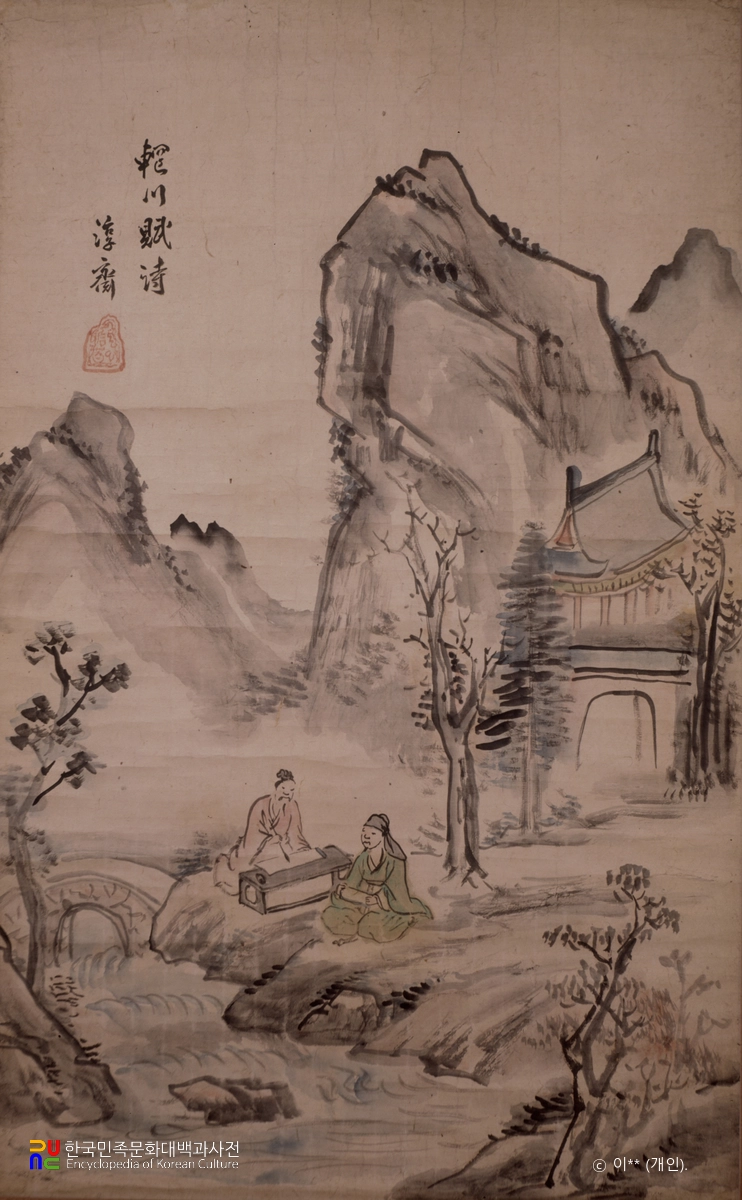 輞川賦詩
淳齋
한국민족문화대백과사전
Encyclopedia of Korean Culture
© 이** (개인).